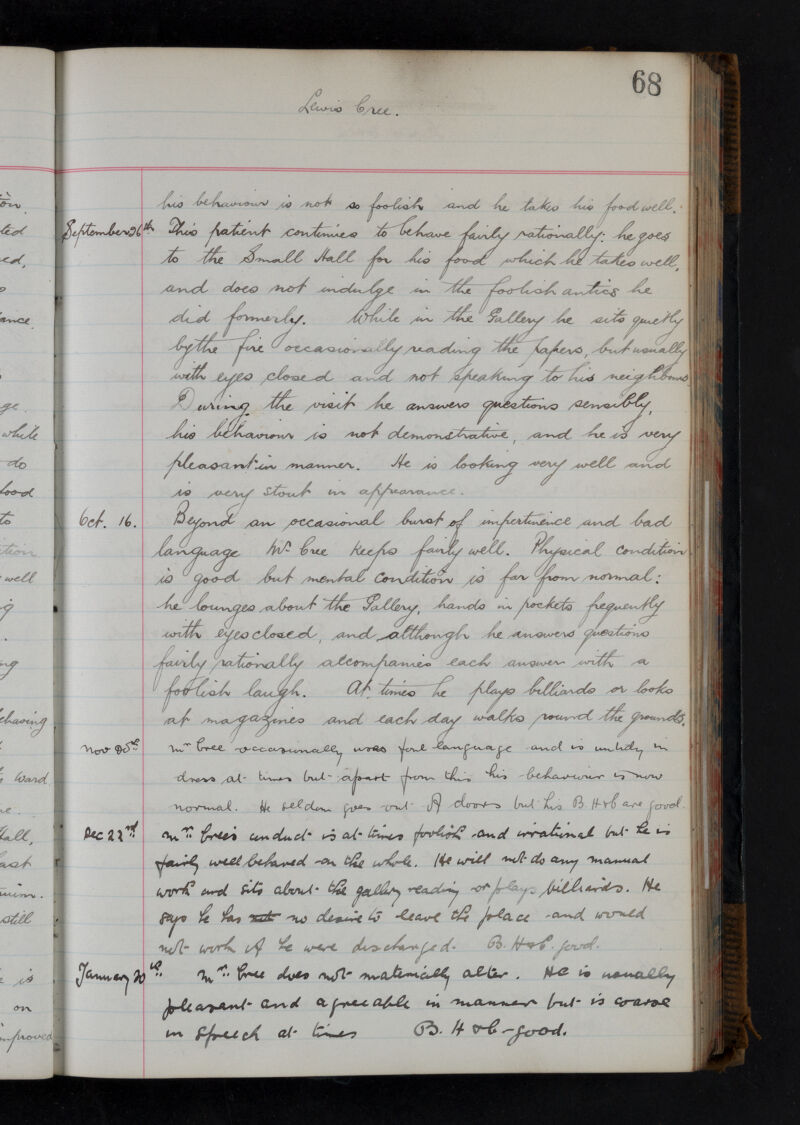 òn.
ted
ed,
ance.
ge.
while
do
food
to
ition
well
ng
ehaving
ward
Hall,
last
still
is
on
improved
68
Lewis Cree.
his behaviour is not so foolish and he takes his food well.
September 26th This patient continues to behave fairly rationally: he goes
to the Small Hall for his food which he takes well,
and does not indulge in the foolish antics he
did formerly. While in the Gallery he sits quietly
by the fire occasionally reading the papers, but usually
with eyes closed and not speaking to his neighbours.
During the visit he answers questions sensibly,
his behaviour is not demonstrative, and he is very
pleasant in manner. He is looking very well and
is very stout in appearance.
Oct. 16. Beyond an occasional burst of impertinence and bad
language Mr. Cree keeps fairly well. Physical condition
is good but mental condition is far from normal:
he lounges about the Gallery, hands in pockets frequently
with eyes closed, and although he answers questions
fairly rationally accompanies each answer with a
foolish laugh. At times he plays billiards or looks
at magazines and each day walks round the grounds.
Nov Mr Cree occasionally uses foul language and is untidy in
dress at times but apart from this his behaviour is now
normal. He seldom goes out of doors but his B H & C are good.
Dec 22nd Mr. Cree's conduct is at times foolish and irrational but he is
fairly well behaved on the whole. He will not do any manual
work and sits about the gallery reading or plays billiards. He
says he has no desire to leave the place and would
not work if he were discharged. B. H & C. good.
January 20th. Mr. Cree does not materially alter. He is usually
pleasant and agreeable in manner but is coarse
in speech at times B. H & C - good.